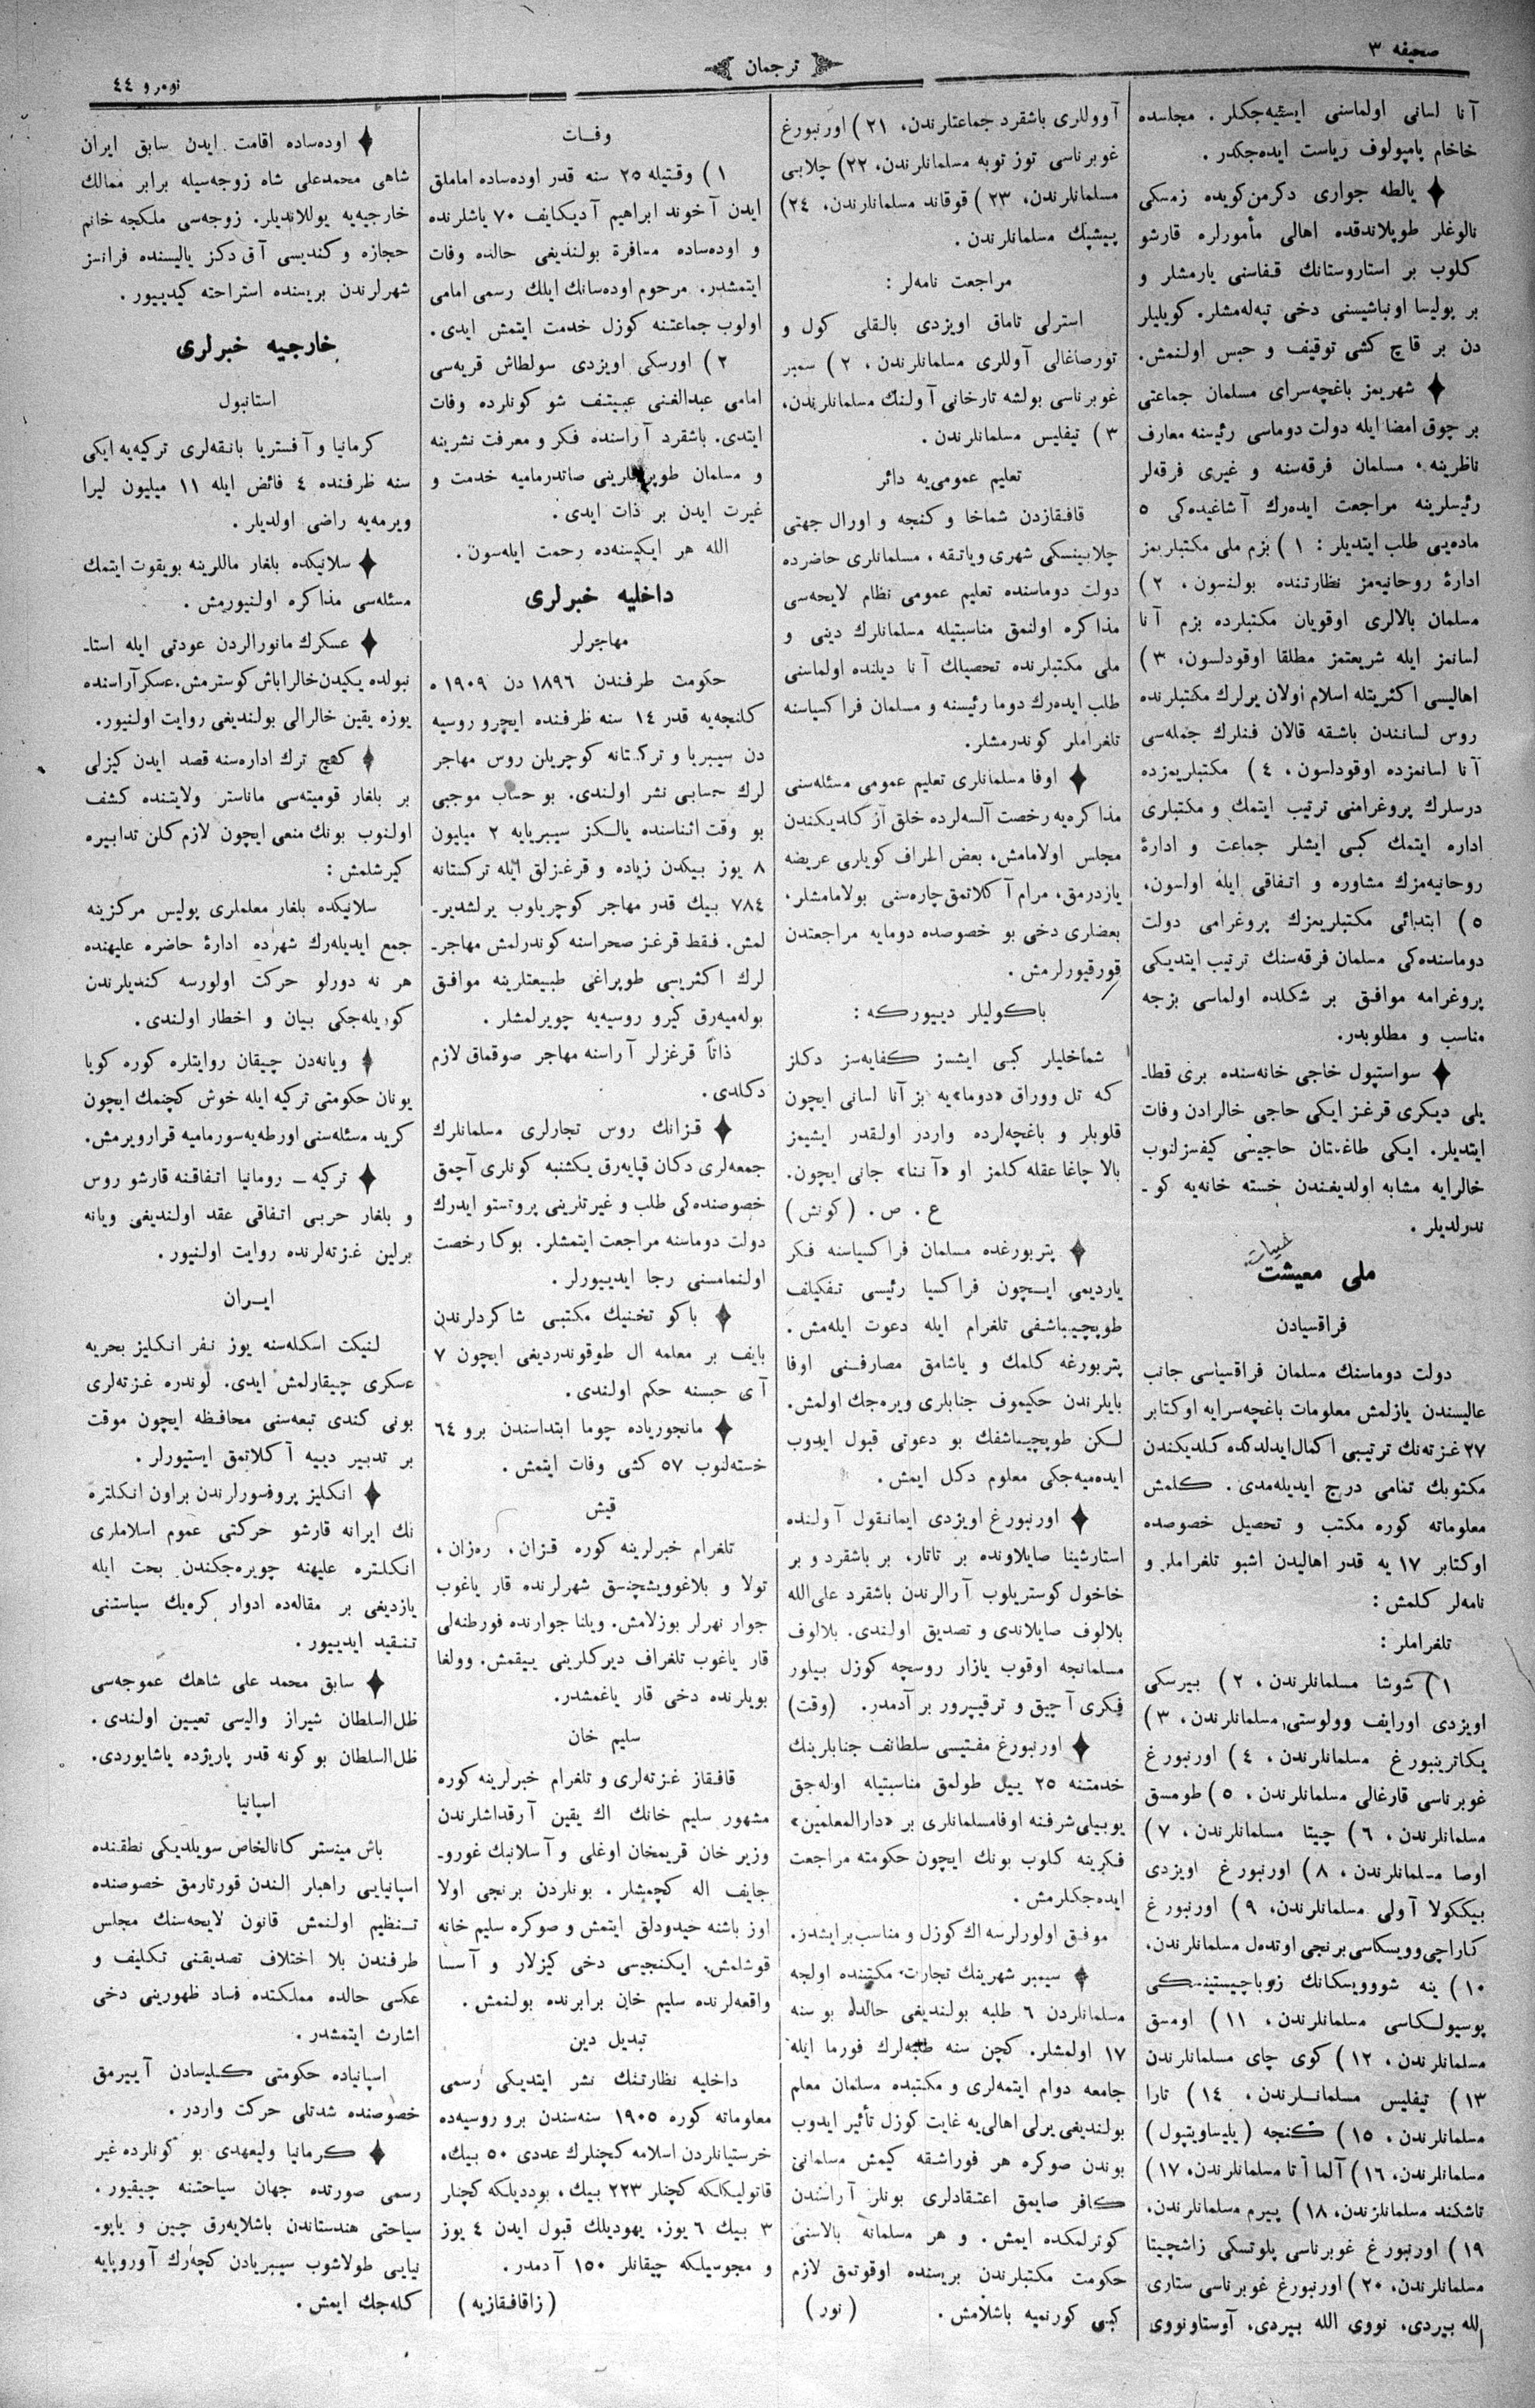 صحيفه ٣
ترجمان
نومرو ٤٤
آنا لسانى اولماسنى ايستيه‌جكلر. مجلسده
خاخام پامپولوف رياست ايده‌جكدر.
يالطه جوارى دكرمن‌كويده زمسكى
نالوغلر طوپلاندقده اهالى مأمورلره قارشو
كلوب بر استاروستانك قفاسنى يارمشلر و
بر پوليسا اونباشيسنى دخى تپه‌له‌مشلر. كويليلر
دن بر قاچ كشى توقيف و حبس اولنمش.
شهريمز باغچه‌سراى مسلمان جماعتى
بر چوق امضا ايله دولت دوماسى رئيسنه معارف
ناظرينه، مسلمان فرقه‌سنه و غيرى فرقه‌لر
رئيسلرينه مراجعت ايده‌رك آشاغيده‌كى ٥
ماده‌يى طلب ايتديلر: ١) بزم ملى مكتبلريمز
ادارۀ روحانيه‌مز نظارتنده بولنسون، ٢)
مسلمان بالالرى اوقويان مكتبلرده بزم آنا
لسانمز ايله شريعتمز مطلقا اوقودلسون، ٣)
اهاليسى اكثريتله اسلام اولان يرلرك مكتبلرنده
روس لسانندن باشقه قالان فنلرك جمله‌سى
آنا لسانمزده اوقودلسون، ٤) مكتبلريمزده
درسلرك پروغرامنى ترتيب ايتمك و مكتبلرى
اداره ايتمك كبى ايشلر جماعت و ادارۀ
روحانيه‌مزك مشاوره و اتفاقى ايله اولسون،
٥) ابتدائى مكتبلريمزك پروغرامى دولت
دوماسنده‌كى مسلمان فرقه‌سنك ترتيب ايتديكى
پروغرامه موافق بر شكلده اولماسى بزجه
مناسب و مطلوبدر.
سواستپول خاجى خانه‌سنده برى قطا-
يلى ديكرى قرغز ايكى حاجى خالرادن وفات
ايتديلر. ايكى طاغستان حاجيسى كيفسزلنوب
خالرايه مشابه اولديغندن خسته خانه‌يه كو-
ندرلديلر.
ملى معيشت
فراقسيادن
دولت دوماسنك مسلمان فراقسياسى جانب
عاليسندن يازلمش معلومات باغچه‌سرايه اوكتابر
٢٧ غزته‌نك ترتيبى اكمال ايدلدكده كلديكندن
مكتوبك تمامى درج ايديله‌مدى. كلمش
معلوماته كوره مكتب و تحصيل خصوصده
اوكتابر ١٧ يه قدر اهاليدن اشبو تلغراملر و
نامه‌لر كلمش:
تلغراملر:
١) شوشا مسلمانلرندن، ٢) بيرسكى
اويزدى اورايف وولوستى مسلمانلرندن، ٣)
يكاترينبورغ مسلمانلرندن، ٤) اورنبورغ
غوبرناسى قارغالى مسلمانلرندن، ٥) طومسق
مسلمانلرندن، ٦) چيتا مسلمانلرندن، ٧)
اوصا مسلمانلرندن، ٨) اورنبورغ اويزدى
بيككولا آولى مسلمانلرندن، ٩) اورنبورغ
كاراچى وويسكاسى برنجى اوتده‌ل مسلمانلرندن،
١٠) ينه شوويسكانك زوباچيستينسكى
پوسيولكاسى مسلمانلرندن، ١١) اومسق
مسلمانلرندن، ١٢) كوى چاى مسلمانلرندن
١٣) تيفليس مسلمانلرندن، ١٤) تارا
مسلمانلرندن، ١٥) كنجه (يليساويتپول)
مسلمانلرندن، ١٦) آلما آتا مسلمانلرندن، ١٧)
تاشكند مسلمانلرندن، ١٨) پيرم مسلمانلرندن،
١٩) اورنبورغ غوبرناسى پلوتسكى زاشچيتا
مسلمانلرندن، ٢٠) اورنبورغ غوبرناسى ستارى
الله بيردى، نووى الله بيردى، آوستاونووى
آووللرى باشقرد جماعتلرندن، ٢١) اورنبورغ
غوبرناسى توز توبه مسلمانلرندن، ٢٢) چلابى
مسلمانلرندن، ٢٣) قوقاند مسلمانلرندن، ٢٤)
پيشپك مسلمانلرندن.
مراجعت نامه‌لر:
استرلى تاماق اويزدى بالقلى كول و
تورصاغالى آوللرى مسلمانلرندن، ٢) سمبر
غوبرناسى بولشه تارخانى آولنك مسلمانلرندن،
٣) تيفليس مسلمانلرندن.
تعليم عمومى‌يه دائر
قافقازدن شماخا و كنجه و اورال جهتى
چلابينسكى شهرى وياتقه، مسلمانلرى حاضرده
دولت دوماسنده تعليم عمومى نظام لايحه‌سى
مذاكره اولنمق مناسبتيله مسلمانلرك دينى و
ملى مكتبلرنده تحصيلك آنا ديلنده اولماسنى
طلب ايده‌رك دوما رئيسنه و مسلمان فراكسياسنه
تلغراملر كوندرمشلر.
اوفا مسلمانلرى تعليم عمومى مسئله‌سنى
مذاكره‌يه رخصت آلسه‌لرده خلق آز كلديكندن
مجلس اولامامش، بعض اطراف كويلرى عريضه
يازدرمق، مرام آكلاتمق چاره‌سنى بولامامشلر،
بعضلرى دخى بو خصوصده دومايه مراجعتدن
قورقيورلرمش.
باكوليلر دييوركه:
شماخليلر كبى ايشسز كفايه‌سز دكلز
كه تل ووراق «دوما»يه بز آنا لسانى ايچون
قلوبلر و باغچه‌لرده واردر اولقدر ايشيمز
بالا چاغا عقله كلمز او «آننا» جانى ايچون.
ع. ص. (كونش)
پتربورغده مسلمان فراكسياسنه فكر
يارديمى ايچون فراكسيا رئيسى تفكيلف
طوپچيباشفى تلغرام ايله دعوت ايله‌مش.
پتربورغه كلمك و ياشامق مصارفنى اوفا
بايلرندن حكيموف جنابلرى ويره‌جك اولمش.
لكن طوپچيباشفك بو دعوتى قبول ايدوب
ايده‌ميه‌جكى معلوم دكل ايمش.
اورنبورغ اويزدى ايمانقول آولنده
استارشينا صايلاونده بر تاتار، بر باشقرد و بر
خاخول كوستريلوب آرالرندن باشقرد على‌الله
بلالوف صايلاندى و تصديق اولندى. بلالوف
مسلمانجه اوقوب يازار روسچه كوزل بيلور
فكرى آچيق و ترقيپرور بر آدمدر. (وقت)
اورنبورغ مفتيسى سلطانف جنابلرينك
خدمتنه ٢٥ ييل طولمق مناسبتيله اوله‌جق
يوبيلى شرفنه اوفامسلمانلرى بر «دارالمعلمين»
فكرينه كلوب بونك ايچون حكومته مراجعت
ايده‌جكلرمش.
موفق اولورلرسه اك كوزل و مناسب بر ايشدر.
سيمبر شهرينك تجارت مكتبنده اولجه
مسلمانلردن ٦ طلبه بولنديغى حالده بو سنه
١٧ اولمشلر. كچن سنه طلبه‌لرك فورما ايله
جامعه دوام ايتمه‌لرى و مكتبده مسلمان معلم
بولنديغى يرلى اهالى‌يه غايت كوزل تأثير ايدوب
بوندن صوكره هر فوراشقه كيمش مسلمانى
كافر صايمق اعتقادلرى بونلر آراسندن
كوترلمكده ايمش. و هر مسلمانه بالاسنى
حكومت مكتبلرندن بريسنده اوقوتمق لازم
كبى كورنميه باشلامش. (نور)
وفات
١) وقتيله ٢٥ سنه قدر اوده‌ساده اماملق
ايدن آخوند ابراهيم آديكايف ٧٠ ياشلرنده
و اوده‌ساده مسافرة بولنديغى حالده وفات
ايتمشدر. مرحوم اوده‌سانك ايلك رسمى امامى
اولوب جماعتنه كوزل خدمت ايتمش ايدى.
٢) اورسكى اويزدى سولطاش قريه‌سى
امامى عبدالغنى عبيتف شو كونلرده وفات
ايتدى. باشقرد آراسنده فكر و معرفت نشرينه
و مسلمان طوپراقلرينى صاتدرماميه خدمت و
غيرت ايدن بر ذات ايدى.
الله هر ايكيسنه‌ده رحمت ايله‌سون.
داخليه خبرلرى
مهاجرلر
حكومت طرفندن ١٨٩٦ دن ١٩٠٩ ه
كلنجه‌يه قدر ١٤ سنه ظرفنده ايچرو روسيه
دن سيبريا و تركستانه كوچريلن روس مهاجر
لرك حسابى نشر اولندى. بو حساب موجبى
بو وقت اثناسنده يالكز سيبريايه ٢ ميليون
٨ يوز بيكدن زياده و قرغزلق ايله تركستانه
٧٨٤ بيك قدر مهاجر كوچريلوب يرلشدير-
لمش. فقط قرغز صحراسنه كوندرلمش مهاجر-
لرك اكثريسى طوپراغى طبيعتلرينه موافق
بوله‌ميه‌رق كيرو روسيه‌يه چويرلمشلر.
ذاتاً قرغزلر آراسنه مهاجر صوقماق لازم
دكلدى.
قزانك روس تجارلرى مسلمانلرك
جمعه‌لرى دكان قپايه‌رق يكشنبه كونلرى آچمق
خصوصنده‌كى طلب و غيرتلرينى پروتستو ايدرك
دولت دوماسنه مراجعت ايتمشلر. بوكا رخصت
اولنمامسنى رجا ايدييورلر.
باكو تخنيك مكتبى شاكردلرندن
بايف بر معلمه ال طوقوندرديغى ايچون ٧
آى حبسنه حكم اولندى.
مانجورياده چوما ابتداسندن برو ٦٤
خسته‌لنوب ٥٧ كشى وفات ايتمش.
قيش
تلغرام خبرلرينه كوره قزان، ره‌زان،
تولا و بلاغوويشچنسق شهرلرنده قار ياغوب
جوار نهرلر بوزلامش. ويلنا جوارنده فورطنه‌لى
قار ياغوب تلغراف ديركلرينى ييقمش. وولغا
بويلرنده دخى قار ياغمشدر.
سليم خان
قافقاز غزته‌لرى و تلغرام خبرلرينه كوره
مشهور سليم خانك اك يقين آرقداشلرندن
وزير خان قريمخان اوغلى و آسلانبك غورو-
جايف اله كچمشلر. بونلردن برنجى اولا
اوز باشنه حيدودلق ايتمش و صوكره سليم خانه
قوشلمش. ايكنجيسى دخى كيزلار و آسسا
واقعه‌لرنده سليم خان برابرنده بولنمش.
تبديل دين
داخليه نظارتنك نشر ايتديكى رسمى
معلوماته كوره ١٩٠٥ سنه‌سندن برو روسيه‌ده
خرستيانلردن اسلامه كچنلرك عددى ٥٠ بيك،
قاتوليكلكه كچنلر ٢٢٣ بيك، بودديلكه كچنلر
٣ بيك ٦ يوز، يهوديلك قبول ايدن ٤ يوز
و مجوسيلكه چيقانلر ١٥٠ آدمدر.
(زاقافقازيه)
اوده‌ساده اقامت ايدن سابق ايران
شاهى محمدعلى شاه زوجه‌سيله برابر ممالك
خارجيه‌يه يوللانديلر. زوجه‌سى ملكجه خانم
حجازه و كنديسى آق دكز ياليسنده فرانسز
شهرلرندن بريسنده استراحته كيدييور.
خارجيه خبرلرى
استانبول
كرمانيا و آفستريا بانقه‌لرى تركيه‌يه ايكى
سنه ظرفنده ٤ فائض ايله ١١ ميليون ليرا
ويرمه‌يه راضى اولديلر.
سلانيكده بلغار ماللرينه بويقوت ايتمك
مسئله‌سى مذاكره اولنيورمش.
عسكرك مانورالردن عودتى ايله استا-
نبولده يكيدن خالرا باش كوسترمش. عسكر آراسنده
يوزه يقين خالرالى بولنديغى روايت اولنيور.
كنج ترك اداره‌سنه قصد ايدن كيزلى
بر بلغار قوميته‌سى ماناستر ولايتنده كشف
اولنوب بونك منعى ايچون لازم كلن تدابيره
كيرشلمش:
سلانيكده بلغار معلملرى پوليس مركزينه
جمع ايديله‌رك شهرده ادارۀ حاضره عليهنده
هر نه دورلو حركت اولورسه كنديلرندن
كوريله‌جكى بيان و اخطار اولندى.
ويانه‌دن چيقان روايتلره كوره كويا
يونان حكومتى تركيه ايله خوش كچنمك ايچون
كريد مسئله‌سنى اورطه‌يه سورماميه قرار ويرمش.
تركيه - رومانيا اتفاقنه قارشو روس
و بلغار حربى اتفاقى عقد اولنديغى ويانه
برلين غزته‌لرنده روايت اولنيور.
ايران
لنيكت اسكله‌سنه يوز نفر انكليز بحريه
عسكرى چيقارلمش ايدى. لوندره غزته‌لرى
بونى كندى تبعه‌سنى محافظه ايچون موقت
بر تدبير دييه آكلاتمق ايستيورلر.
انكليز پروفسورلرندن براون انكلتره
نك ايرانه قارشو حركتى عموم اسلاملرى
انكلتره عليهنه چويره‌جكندن بحث ايله
يازديغى بر مقاله‌ده ادوار كره‌يك سياستنى
تنقيد ايدييور.
سابق محمد على شاهك عموجه‌سى
ظل‌السلطان شيراز واليسى تعيين اولندى.
ظل‌السلطان بو كونه قدر پاريژده ياشايوردى.
اسپانيا
باش مينستر كانالخاص سويلديكى نطقنده
اسپانيايى راهبلر الندن قورتارمق خصوصنده
تنظيم اولنمش قانون لايحه‌سنك مجلس
طرفندن بلا اختلاف تصديقنى تكليف و
عكسى حالده مملكتده فساد ظهورينى دخى
اشارت ايتمشدر.
اسپانياده حكومتى كليسادن آييرمق
خصوصنده شدتلى حركت واردر.
كرمانيا وليعهدى بو كونلرده غير
رسمى صورتده جهان سياحتنه چيقيور.
سياحتى هندستاندن باشلايه‌رق چين و ياپو-
نيايى طولاشوب سيبريادن كچه‌رك آوروپايه
كله‌جك ايمش.